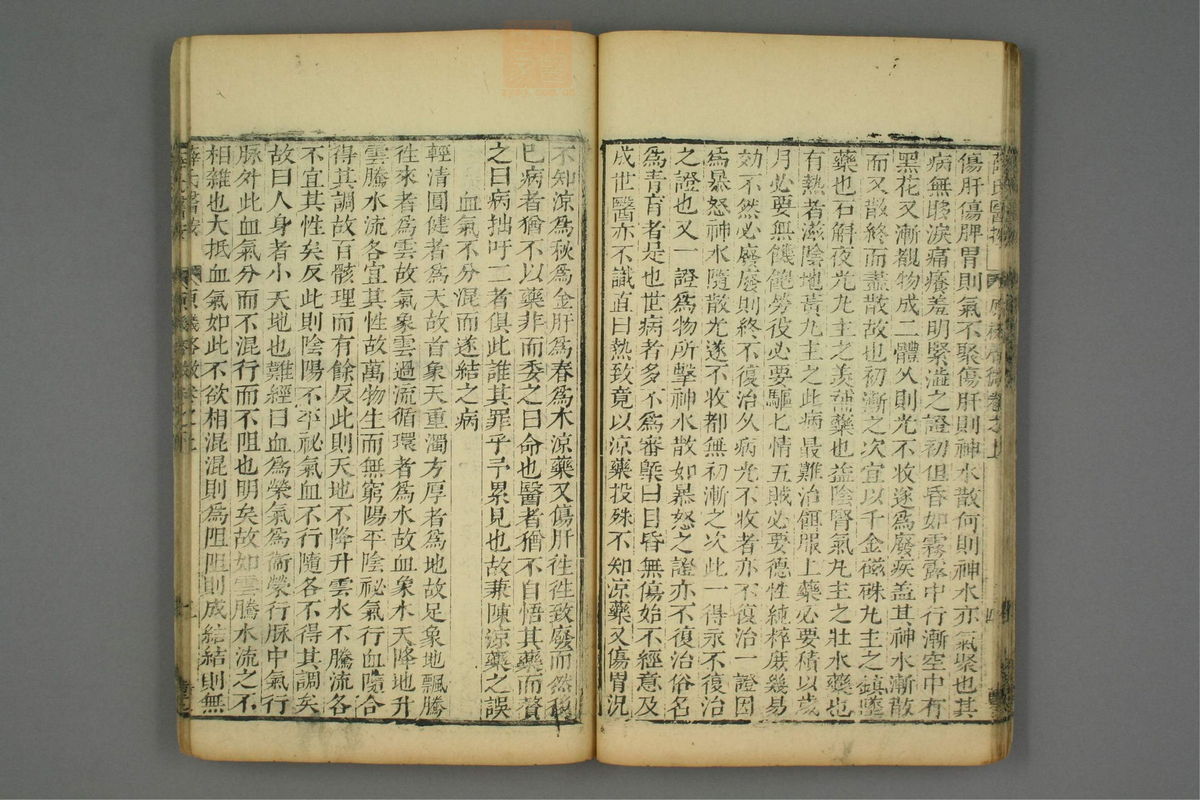 傷肝傷脾胃則氣不聚傷肝則神水散何則神水亦氣聚也其
病無眵淚痛癢羞明緊澁之證初但昏如霧露中行漸空中有
黑花又漸覩物成二體久則光不收遂爲廢疾蓋其神水漸散
而又散終而盡散故也初漸之次宜以千金磁硃丸主之鎮墜
藥也石斛夜光丸主之羨補藥也益陰腎氣丸主之壯水藥也
有熱者滋陰地黃丸主之此病最難治餌服上藥必要積以歲
月必要無饑飽勞役必要驅七情五賊必要德性純粹庶幾易
効不然必廢廢則終不復治久病光不收者亦不復治一證因
爲暴怒神水隨散光遂不收都無初漸之次此一得永不復治
之證也又一證爲物所擊神水散如暴怒之證亦不復治俗名
爲青盲者是也世病者多不爲審槩曰目昏無傷始不經意及
成世醫亦不識直曰熱致竟以涼藥投殊不知涼藥又傷胃況
不知涼爲秋爲金肝爲春爲木涼藥又傷肝徃徃致廢而然
已病者猶不以藥非而委之曰命也醫者猶不自悟其藥而贅
之曰病拙吁二者俱此誰其罪乎予累見也故兼陳涼藥之誤
血氣不分混而遂結之病
輕清圓健者爲天故首象天重濁方厚者爲地故足象地飄騰
徃來者爲雲故氣象雲過流循環者爲水故血象水天降地升
雲騰水流各宜其性故萬物生而無窮陽平陰祕氣行血隨各
得其調故百骸理而有餘反此則天地不降升雲水不騰流各
不宜其性矣反此則陰陽不平祕氣血不行隨各不得其調矣
故曰人身者小天地也難經曰血爲榮氣爲衞榮行脉中氣行
脉外此血氣分而不混行而不阻也明矣故如雲騰水流之不
相雜也大抵血氣如此不欲相混混則爲阻阻則成結結則無